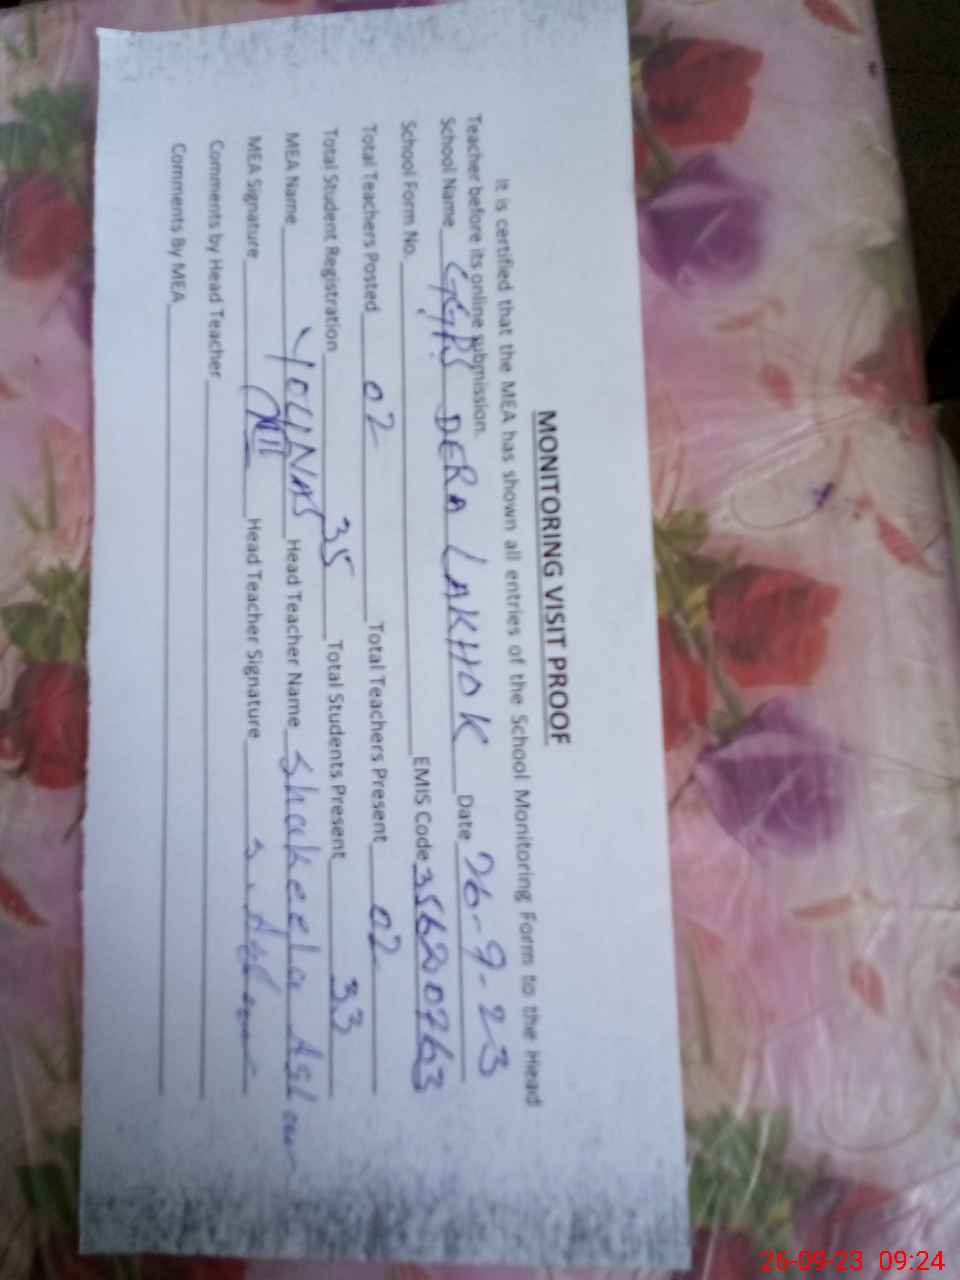 MONITORING VISIT PROOF
It is certified that the MEA has shown all entries of the School Monitoring Form to the Head
Teacher before its online submission.
School Name GGPS DERA LAKHOK Date 26-9-23
School Form No. EMIS Code 356200763
Total Teachers Posted 02 Total Teachers Present 02
Total Student Registration 35 Total Students Present 33
MEA Name YOUNAS Head Teacher Name Shakeela Aslam
MEA Signature Head Teacher Signature S. Aslam
Comments by Head Teacher
Comments By MEA
26-09-23 09:24